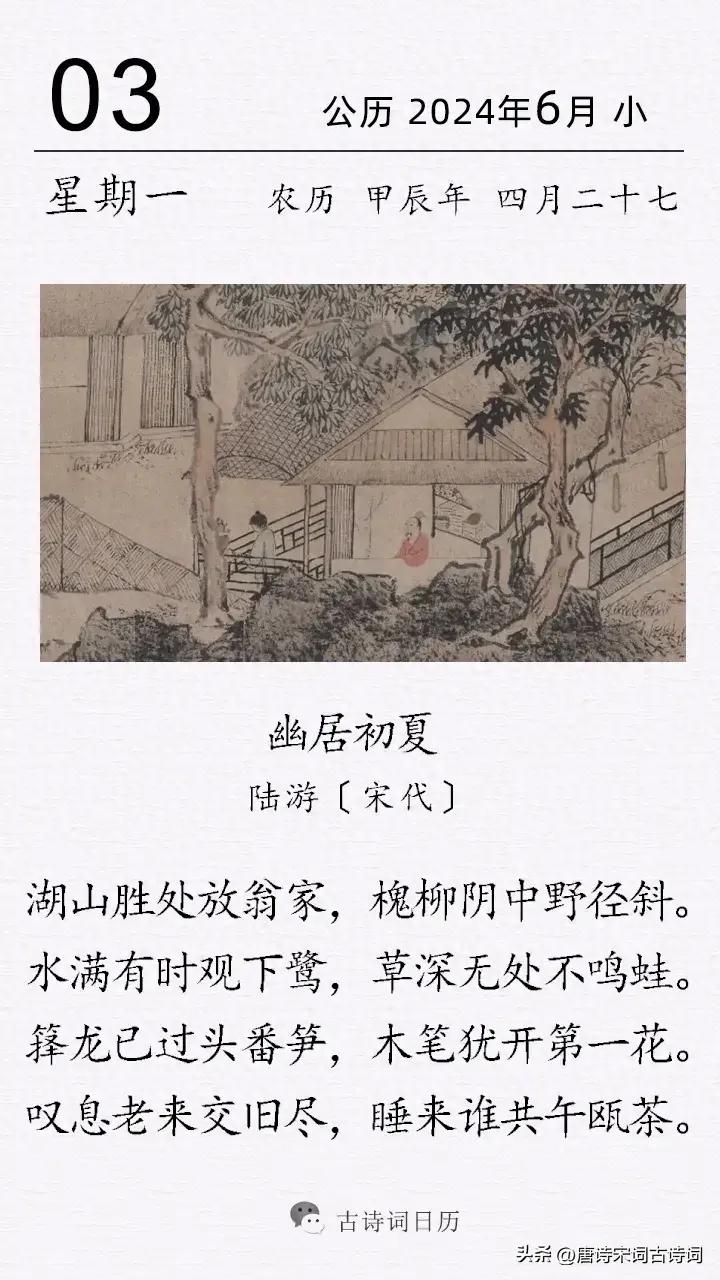 03
公历 2024年6月 小
星期一 农历 甲辰年 四月二十七
幽居初夏
陆游〔宋代〕
湖山胜处放翁家，槐柳阴中野径斜。
水满有时观下鹭，草深无处不鸣蛙。
箨龙已过头番笋，木笔犹开第一花。
叹息老来交旧尽，睡来谁共午瓯茶。
古诗词日历
头条 @唐诗宋词古诗词